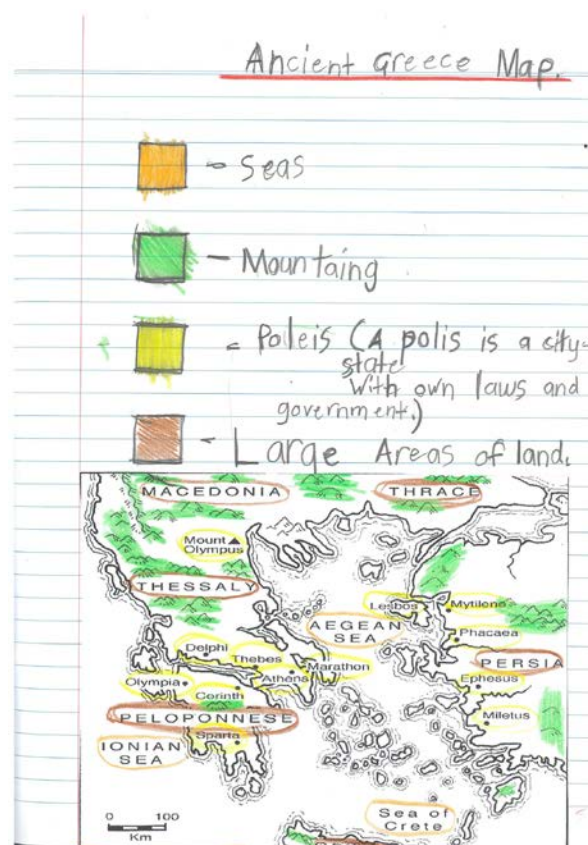 Ancient Greece Map.
- Seas
- Mountaing
- Poleis (A polis is a city-
state
with own laws and
government.)
- Large Areas of land.
MACEDONIA
THRACE
Mount
Olympus
THESSALY
Lesbos
Mytilene
AEGEAN
SEA
Phacaea
Delphi
Thebes
Marathon
PERSIA
Athens
Olympia
Ephesus
Corinth
PELOPONNESE
Miletus
Sparta
IONIAN
SEA
Sea of
Crete
0 100
Km